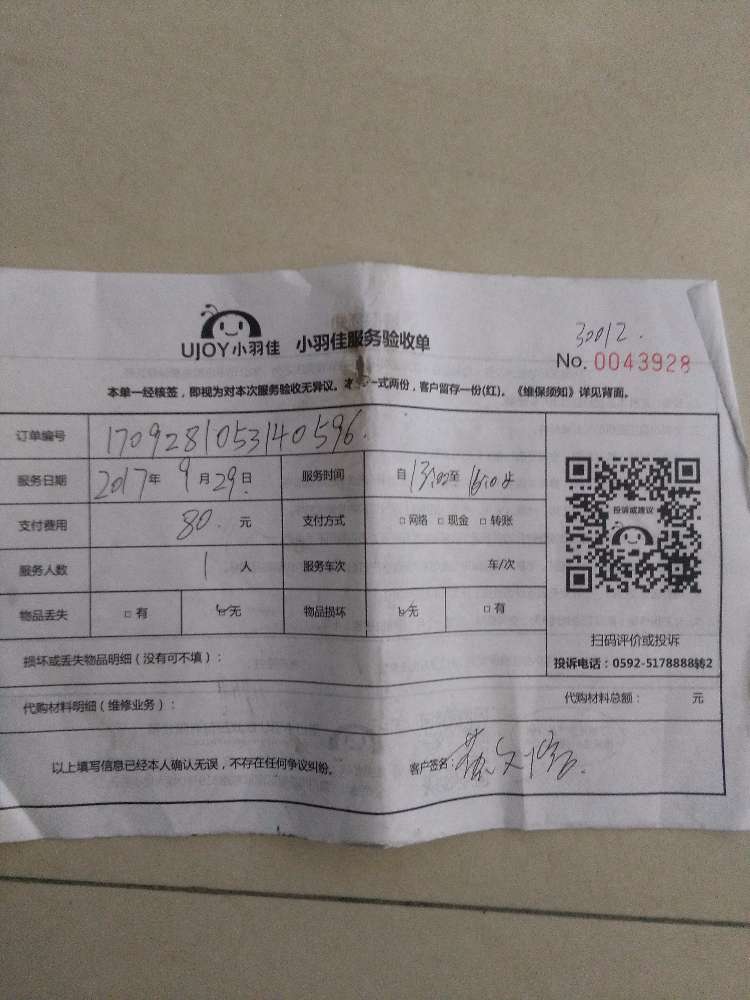 30012.
UJOY小羽佳 小羽佳服务验收单
No. 0043928
本单一经核签，即视为对本次服务验收无异议。 一式两份，客户留存一份(红)。《维保须知》详见背面。
订单编号 170928105314 0596.
服务日期 2017年 9月 29日 服务时间 自 13:00至
支付费用 80. 元 支付方式 □ 网络 □ 现金 □ 转账
投诉或建议
服务人数 1 人 服务车次 车/次
物品丢失 □ 有 □ 无 物品损坏 □ 无 □ 有
扫码评价或投诉
投诉电话：0592-5178888转2
损坏或丢失物品明细（没有可不填）：
代购材料明细（维修业务）： 代购材料总额： 元
以上填写信息已经本人确认无误，不存在任何争议纠纷。 客户签名：